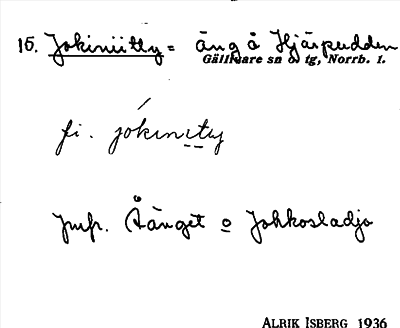 15. Jokiniitty = äng å Hjärpudden
Gällivare sn o tg, Norrb. l.
fi. jókinịtụy
Jmfr. Åänget o Johkosladjo
ALRIK ISBERG 1936